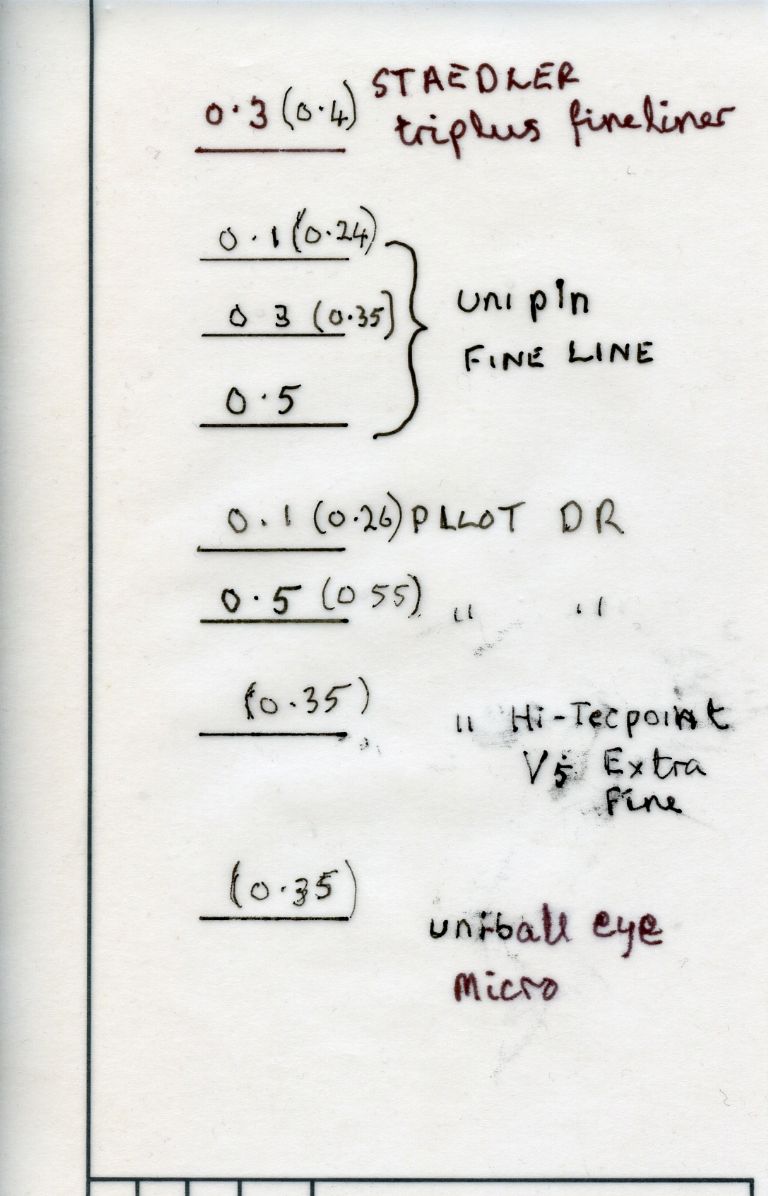 0.3 (0.4) STAEDLER
triplus fineliner
0.1 (0.24)
0 3 (0.35)
0.5
uni pin
FINE LINE
0.1 (0.26) PILOT DR
0.5 (0 55) " "
(0.35) " Hi-Tecpoint
V5 Extra
Fine
(0.35)
uniball eye
Micro